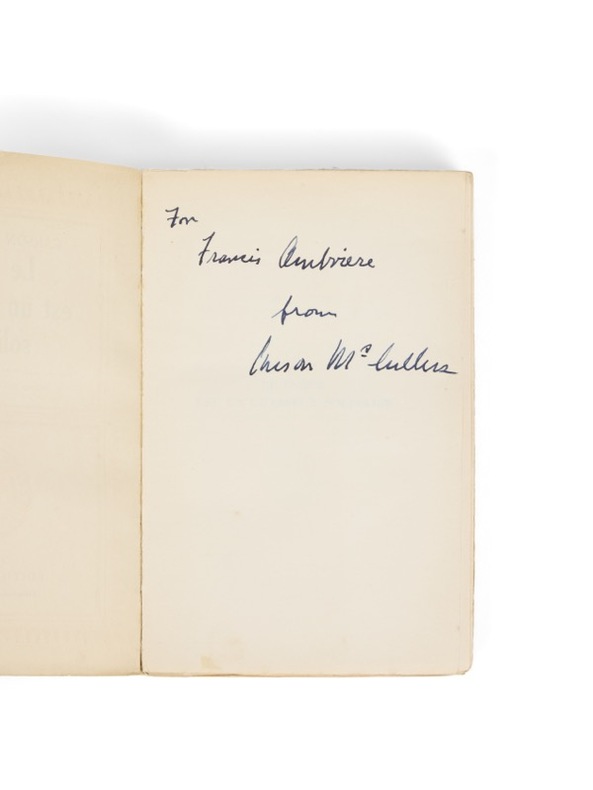 For
Francis Ambriere
from
Carson McCullers